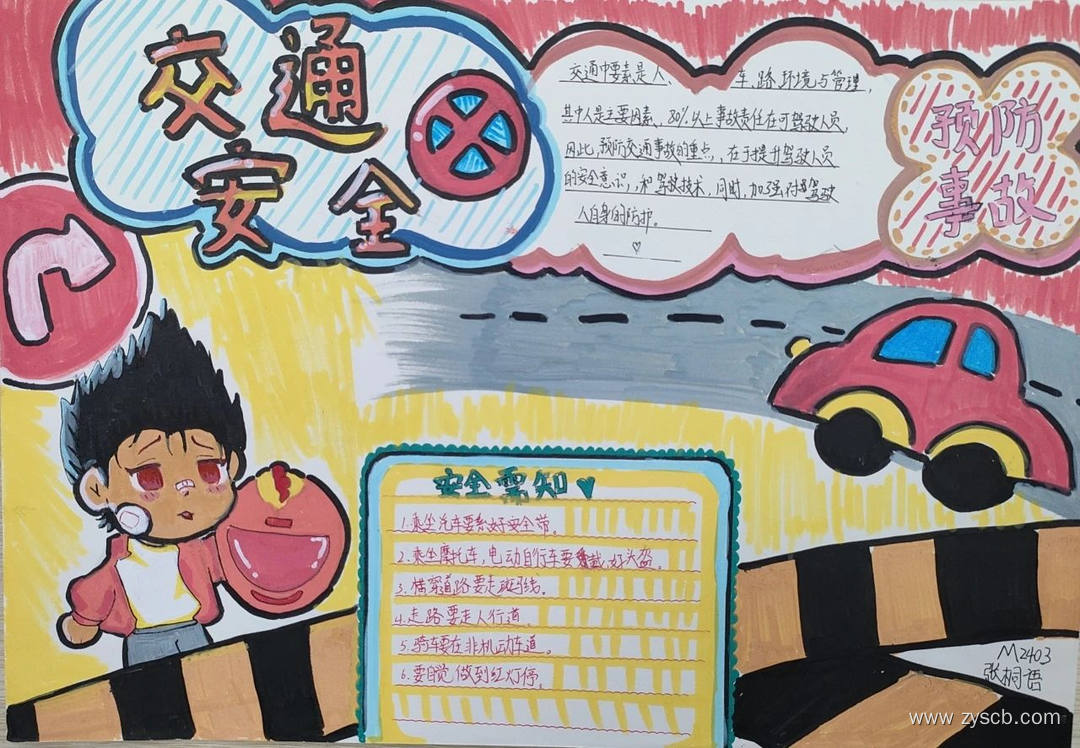 交通
安全
交通中要素是人、车、路、环境与管理，
其中人是主要因素、80%以上事故责任在可驾驶人员，
因此，预防交通事故的重点，在于提升驾驶人员
的安全意识，和驾驶技术，同时，加强对驾驶
人自身的防护。
预防
事故
安全需知
1.乘坐汽车要系好安全带。
2.乘坐摩托车，电动自行车要戴好头盔。
3.横穿道路要走斑马线。
4.走路要走人行道。
5.骑车要在非机动车道。
6.要自觉做到红灯停。
M2403
张桐语
www.zyscb.com